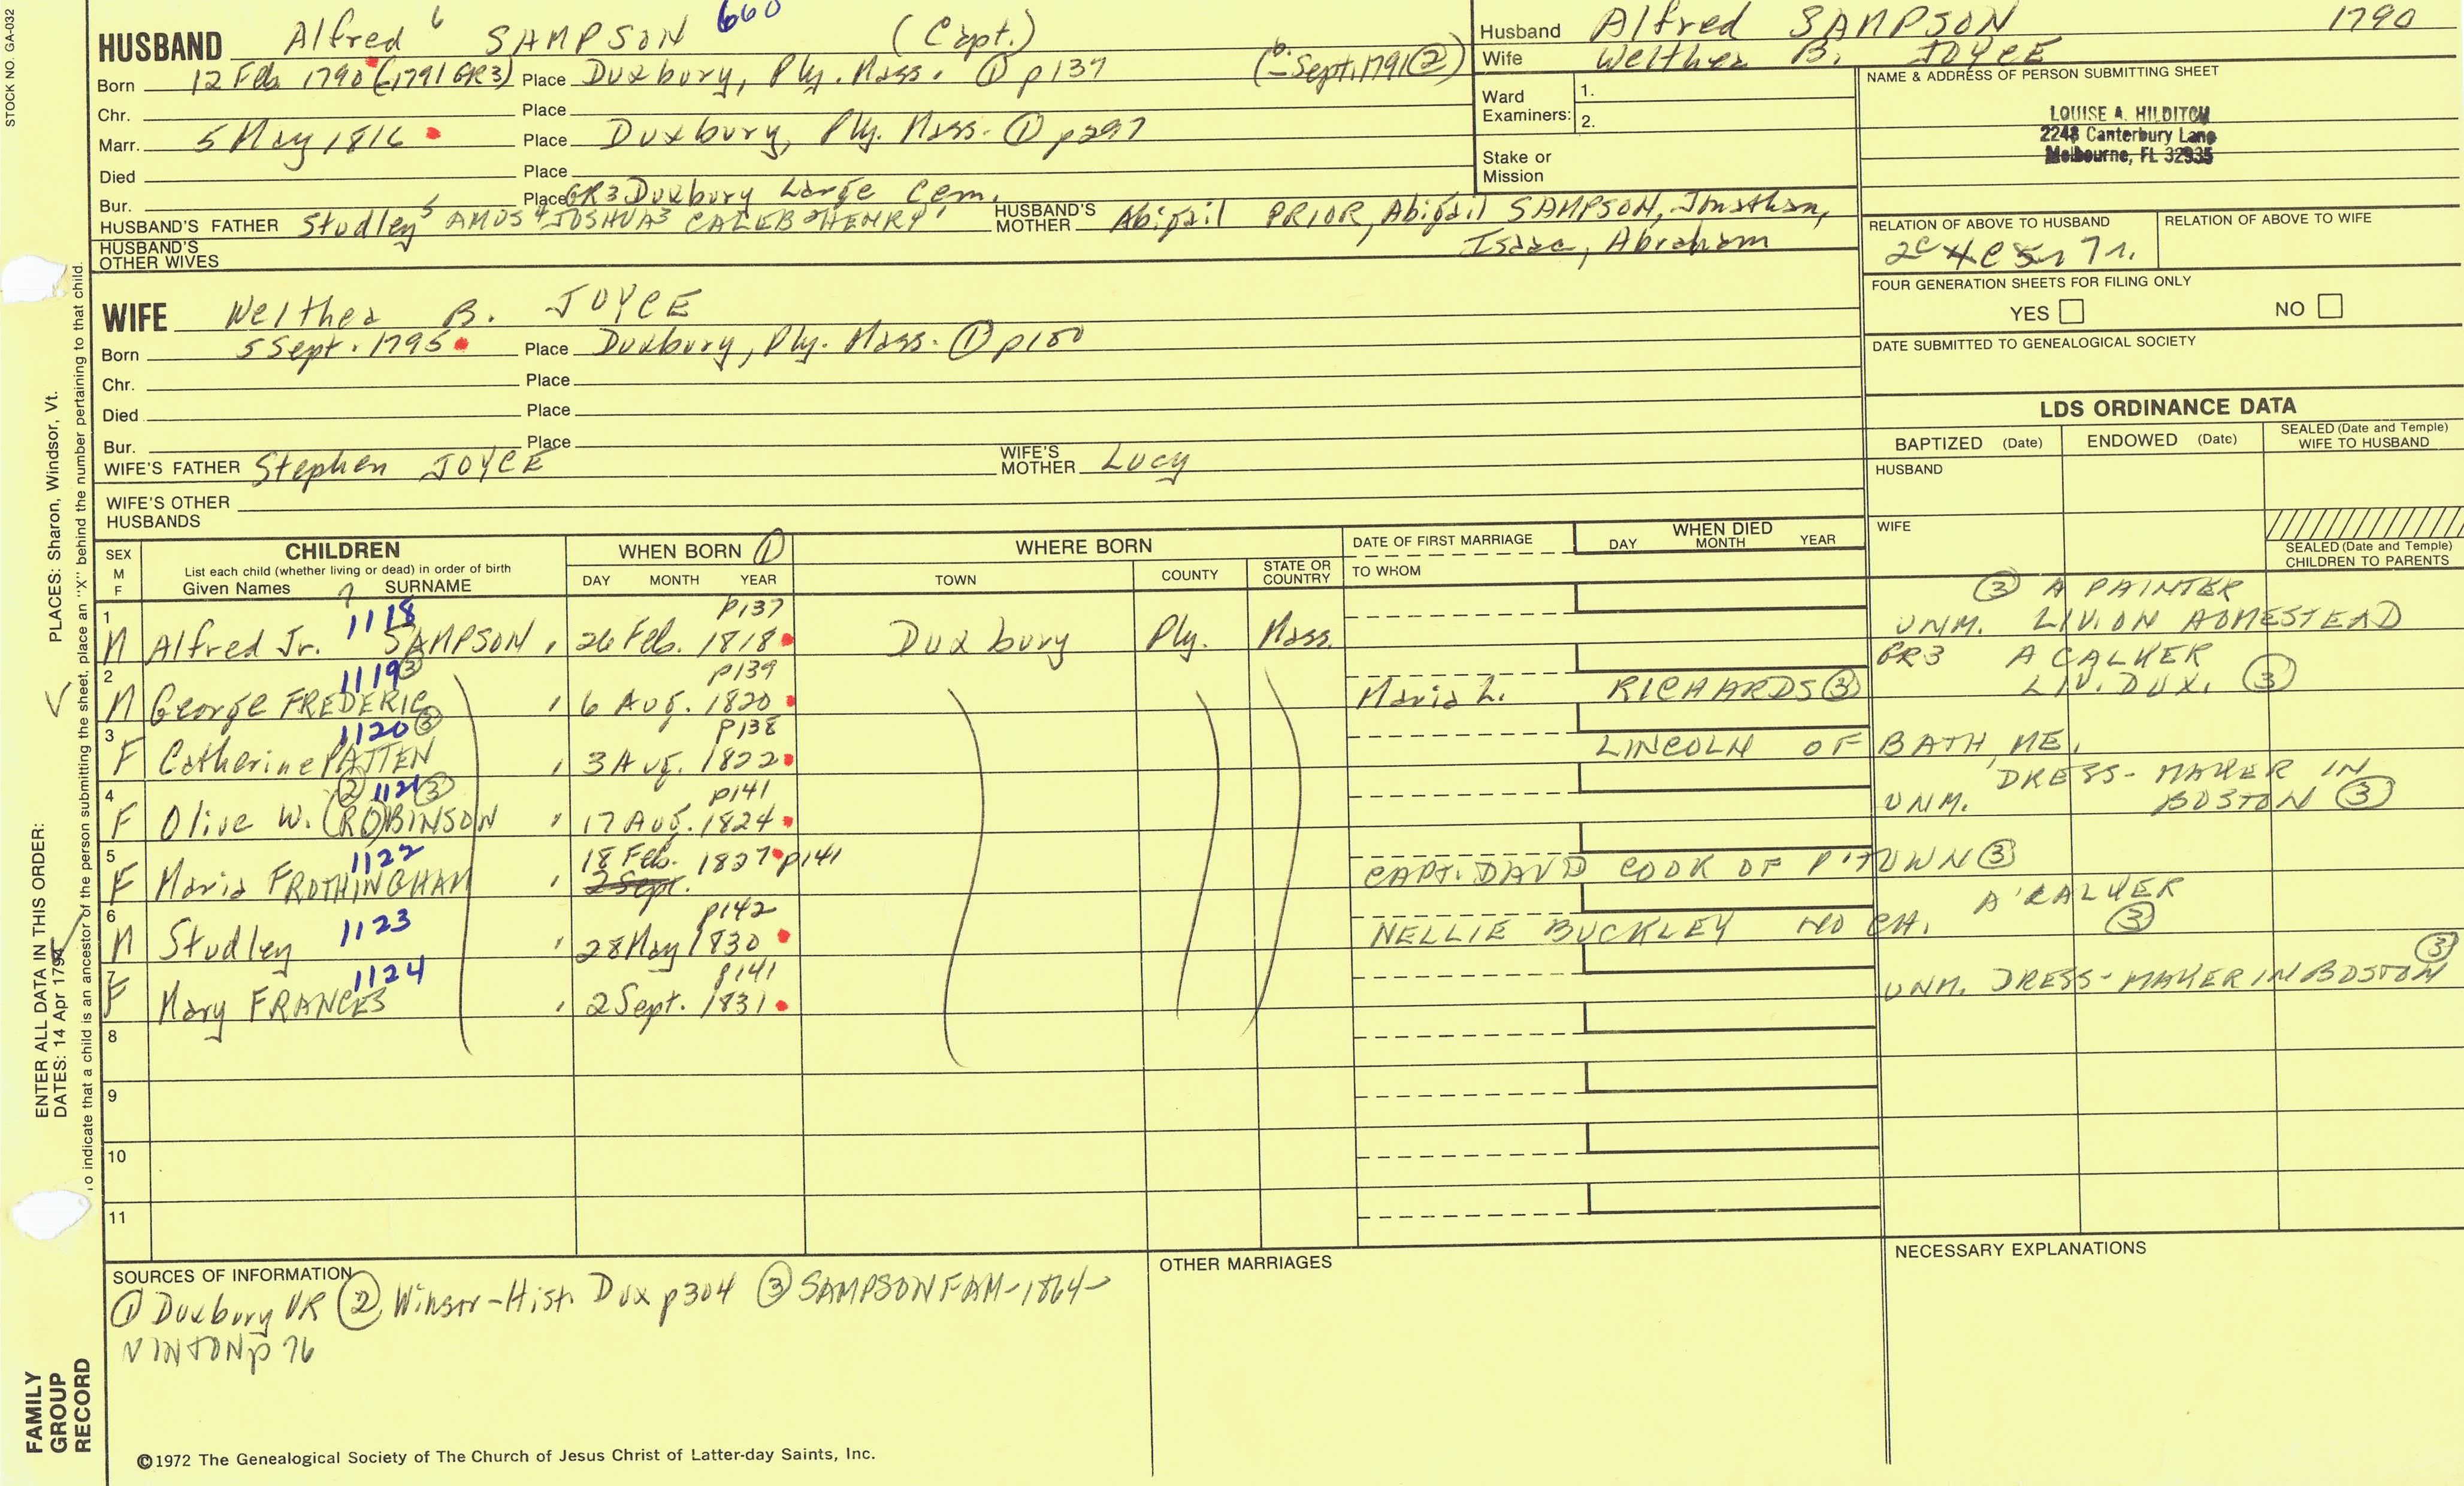 STOCK NO. GA-032
HUSBAND Alfred 6 SAMPSON 660 (Capt.)
Born 12 Feb. 1790 (1791 GR3) Place Duxbury, Ply. Mass. ① p137 (b. - Sept. 1791 ②)
Chr. Place
Marr. 5 May 1816 Place Duxbury, Ply. Mass. ① p297
Died Place
Bur. Place GR3 Duxbury Large Cem.
HUSBAND'S FATHER Studley 5 AMOS 4 JOSHUA 3 CALEB 2 HENRY 1 HUSBAND'S MOTHER Abigail PRIOR, Abigail SAMPSON, Jonathan,
Isaac, Abraham
HUSBAND'S OTHER WIVES
Husband Alfred SAMPSON 1790
Wife Welthea B. JOYCE
Ward Examiners: 1.
2.
Stake or Mission
NAME & ADDRESS OF PERSON SUBMITTING SHEET
LOUISE A. HILDITCH
2248 Canterbury Lane
Melbourne, FL 32935
RELATION OF ABOVE TO HUSBAND RELATION OF ABOVE TO WIFE
FOUR GENERATION SHEETS FOR FILING ONLY
YES NO
DATE SUBMITTED TO GENEALOGICAL SOCIETY
WIFE Welthea B. JOYCE
Born 5 Sept. 1795 Place Duxbury, Ply. Mass. ① p100
Chr. Place
Died Place
Bur. Place
WIFE'S FATHER Stephen JOYCE WIFE'S MOTHER Lucy
WIFE'S OTHER HUSBANDS
LDS ORDINANCE DATA
BAPTIZED (Date) ENDOWED (Date) SEALED (Date and Temple) WIFE TO HUSBAND
HUSBAND
WIFE
SEALED (Date and Temple) CHILDREN TO PARENTS
SEX M F
CHILDREN
List each child (whether living or dead) in order of birth
Given Names 7 SURNAME
WHEN BORN ①
DAY MONTH YEAR
WHERE BORN
TOWN COUNTY STATE OR COUNTRY
DATE OF FIRST MARRIAGE
TO WHOM
WHEN DIED
DAY MONTH YEAR
1 M Alfred Jr. 1118 SAMPSON 26 Feb. 1818 p137 Duxbury Ply. Mass. ③ A PAINTER
UNM. LIV. ON HOMESTEAD
2 M George FREDERIC 1119 ③ 6 Aug. 1820 p139 Maria L. RICHARDS ③ GR3 A CALKER
LIV. DUX. ③
3 F Catherine PATTEN 1120 ③ 3 Aug. 1822 p138 LINCOLN OF BATH, ME.
4 F Olive W. (RO)BINSON ② 1121 ③ 17 Aug. 1824 p141 UNM. DRESS-MAKER IN
BOSTON ③
5 F Maria FROTHINGHAM 1122 18 Feb. 1827 p141 CAPT. DAVID COOK OF P'TOWN ③
2 Sept.
6 M Studley 1123 28 May 1830 p142 NELLIE BUCKLEY NO CH. A CALKER
③
7 F Mary FRANCES 1124 2 Sept. 1831 p141 UNM. DRESS-MAKER IN BOSTON ③
8
9
10
11
SOURCES OF INFORMATION
① Duxbury VR ② Winsor-Hist. Dux p304 ③ SAMPSON FAM-1864-
VINTON p 76
OTHER MARRIAGES
NECESSARY EXPLANATIONS
©1972 The Genealogical Society of The Church of Jesus Christ of Latter-day Saints, Inc.
FAMILY GROUP RECORD
ENTER ALL DATA IN THIS ORDER:
DATES: 14 Apr 1794
PLACES: Sharon, Windsor, Vt.
To indicate that a child is an ancestor of the person submitting the sheet, place an "X" behind the number pertaining to that child.